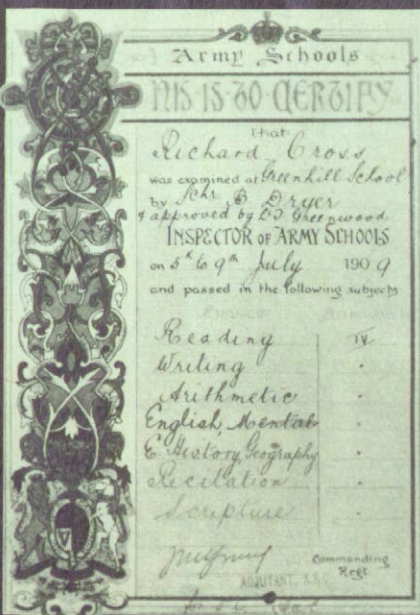 Army Schools
THIS·IS·TO CERTIFY
that
Richard Cross
was examined at Greenhill School
by Schr B Dryer
& approved by Greenwood
INSPECTOR OF ARMY SCHOOLS
on 5th to 9th July 1909
and passed in the following subjects
Reading IV
Writing "
Arithmetic "
English, Mental "
E. History, Geography "
Recitation "
Scripture "
Commanding
Regt.
ADJUTANT,